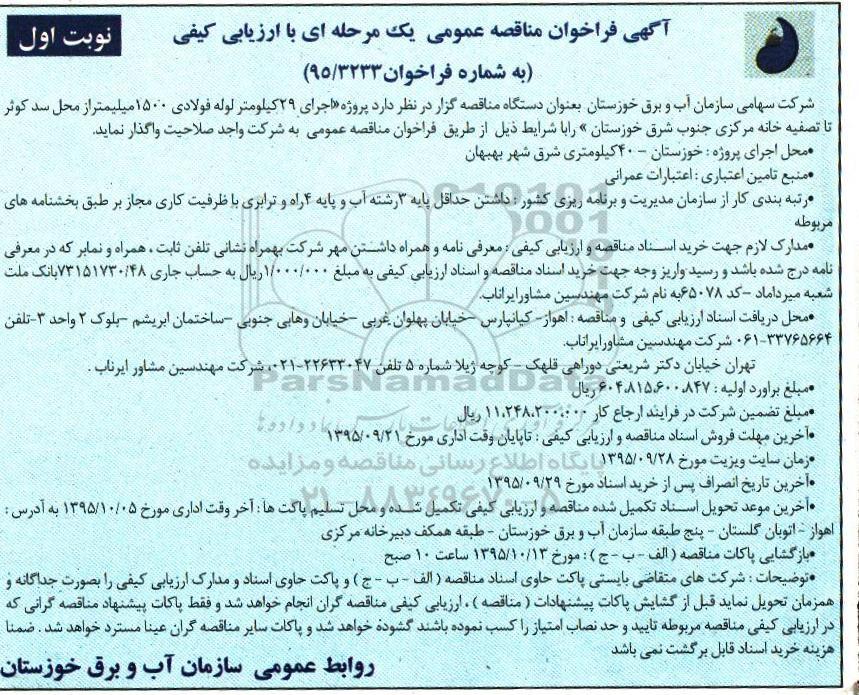 نوبت اول
آگهی فراخوان مناقصه عمومی یک مرحله ای با ارزیابی کیفی
(به شماره فراخوان۹۵/۳۲۳۳)
شرکت سهامی سازمان آب و برق خوزستان بعنوان دستگاه مناقصه گزار در نظر دارد پروژه«اجرای ۲۹کیلومتر لوله فولادی ۱۵۰۰میلیمتراز محل سد کوثر
تا تصفیه خانه مرکزی جنوب شرق خوزستان » رابا شرایط ذیل از طریق فراخوان مناقصه عمومی به شرکت واجد صلاحیت واگذار نماید.
•محل اجرای پروژه : خوزستان – ۴۰کیلومتری شرق شهر بهبهان
•منبع تامین اعتباری : اعتبارات عمرانی
•رتبه بندی کار از سازمان مدیریت و برنامه ریزی کشور : داشتن حداقل پایه ۳رشته آب و پایه ۴راه و ترابری با ظرفیت کاری مجاز بر طبق بخشنامه های
مربوطه
•مدارک لازم جهت خرید اسناد مناقصه و ارزیابی کیفی : معرفی نامه و همراه داشتن مهر شرکت بهمراه نشانی تلفن ثابت ، همراه و نمابر که در معرفی
نامه درج شده باشد و رسید واریز وجه جهت خرید اسناد مناقصه و اسناد ارزیابی کیفی به مبلغ ۱/۰۰۰/۰۰۰ریال به حساب جاری ۷۳۱۵۱۷۳۰/۴۸بانک ملت
شعبه میرداماد –کد ۶۵۰۷۸به نام شرکت مهندسین مشاورایراناب.
•محل دریافت اسناد ارزیابی کیفی و مناقصه : اهواز- کیانپارس –خیابان پهلوان غربی –خیابان وهابی جنوبی –ساختمان ابریشم –بلوک ۲ واحد ۳-تلفن
۰۶۱-۳۳۷۶۵۶۶۴ شرکت مهندسین مشاورایراناب.
تهران خیابان دکتر شریعتی دوراهی قلهک – کوچه ژیلا شماره ۵ تلفن ۲۲۶۳۳۰۴۷-۰۲۱، شرکت مهندسین مشاور ایرناب .
•مبلغ براورد اولیه : ۶۰۴،۸۱۵،۶۰۰،۸۴۷ ریال
•مبلغ تضمین شرکت در فرایند ارجاع کار ۱۱،۲۴۸،۲۰۰،۰۰۰ ریال
•آخرین مهلت فروش اسناد مناقصه و ارزیابی کیفی : تاپایان وقت اداری مورخ ۱۳۹۵/۰۹/۲۱
•زمان سایت ویزیت مورخ ۱۳۹۵/۰۹/۲۸
•آخرین تاریخ انصراف پس از خرید اسناد مورخ ۱۳۹۵/۰۹/۲۹
•آخرین موعد تحویل اسناد تکمیل شده مناقصه و ارزیابی کیفی تکمیل شده و محل تسلیم پاکت ها : آخر وقت اداری مورخ ۱۳۹۵/۱۰/۰۵ به آدرس :
اهواز – اتوبان گلستان – پنج طبقه سازمان آب و برق خوزستان – طبقه همکف دبیرخانه مرکزی
•بازگشایی پاکات مناقصه ( الف – ب – ج ) : مورخ ۱۳۹۵/۱۰/۱۳ ساعت ۱۰ صبح
•توضیحات : شرکت های متقاضی بایستی پاکت حاوی اسناد مناقصه ( الف - ب - ج ) و پاکت حاوی اسناد و مدارک ارزیابی کیفی را بصورت جداگانه و
همزمان تحویل نماید قبل از گشایش پاکات پیشنهادات ( مناقصه ) ، ارزیابی کیفی مناقصه گران انجام خواهد شد و فقط پاکات پیشنهاد مناقصه گرانی که
در ارزیابی کیفی مناقصه مربوطه تایید و حد نصاب امتیاز را کسب نموده باشند گشوده خواهد شد و پاکات سایر مناقصه گران عینا مسترد خواهد شد . ضمنا
هزینه خرید اسناد قابل برگشت نمی باشد
روابط عمومی سازمان آب و برق خوزستان
ParsNamadData
پایگاه اطلاع رسانی مناقصه و مزایده
۰۲۱-۸۸۳۴۹۶۷۰-۵